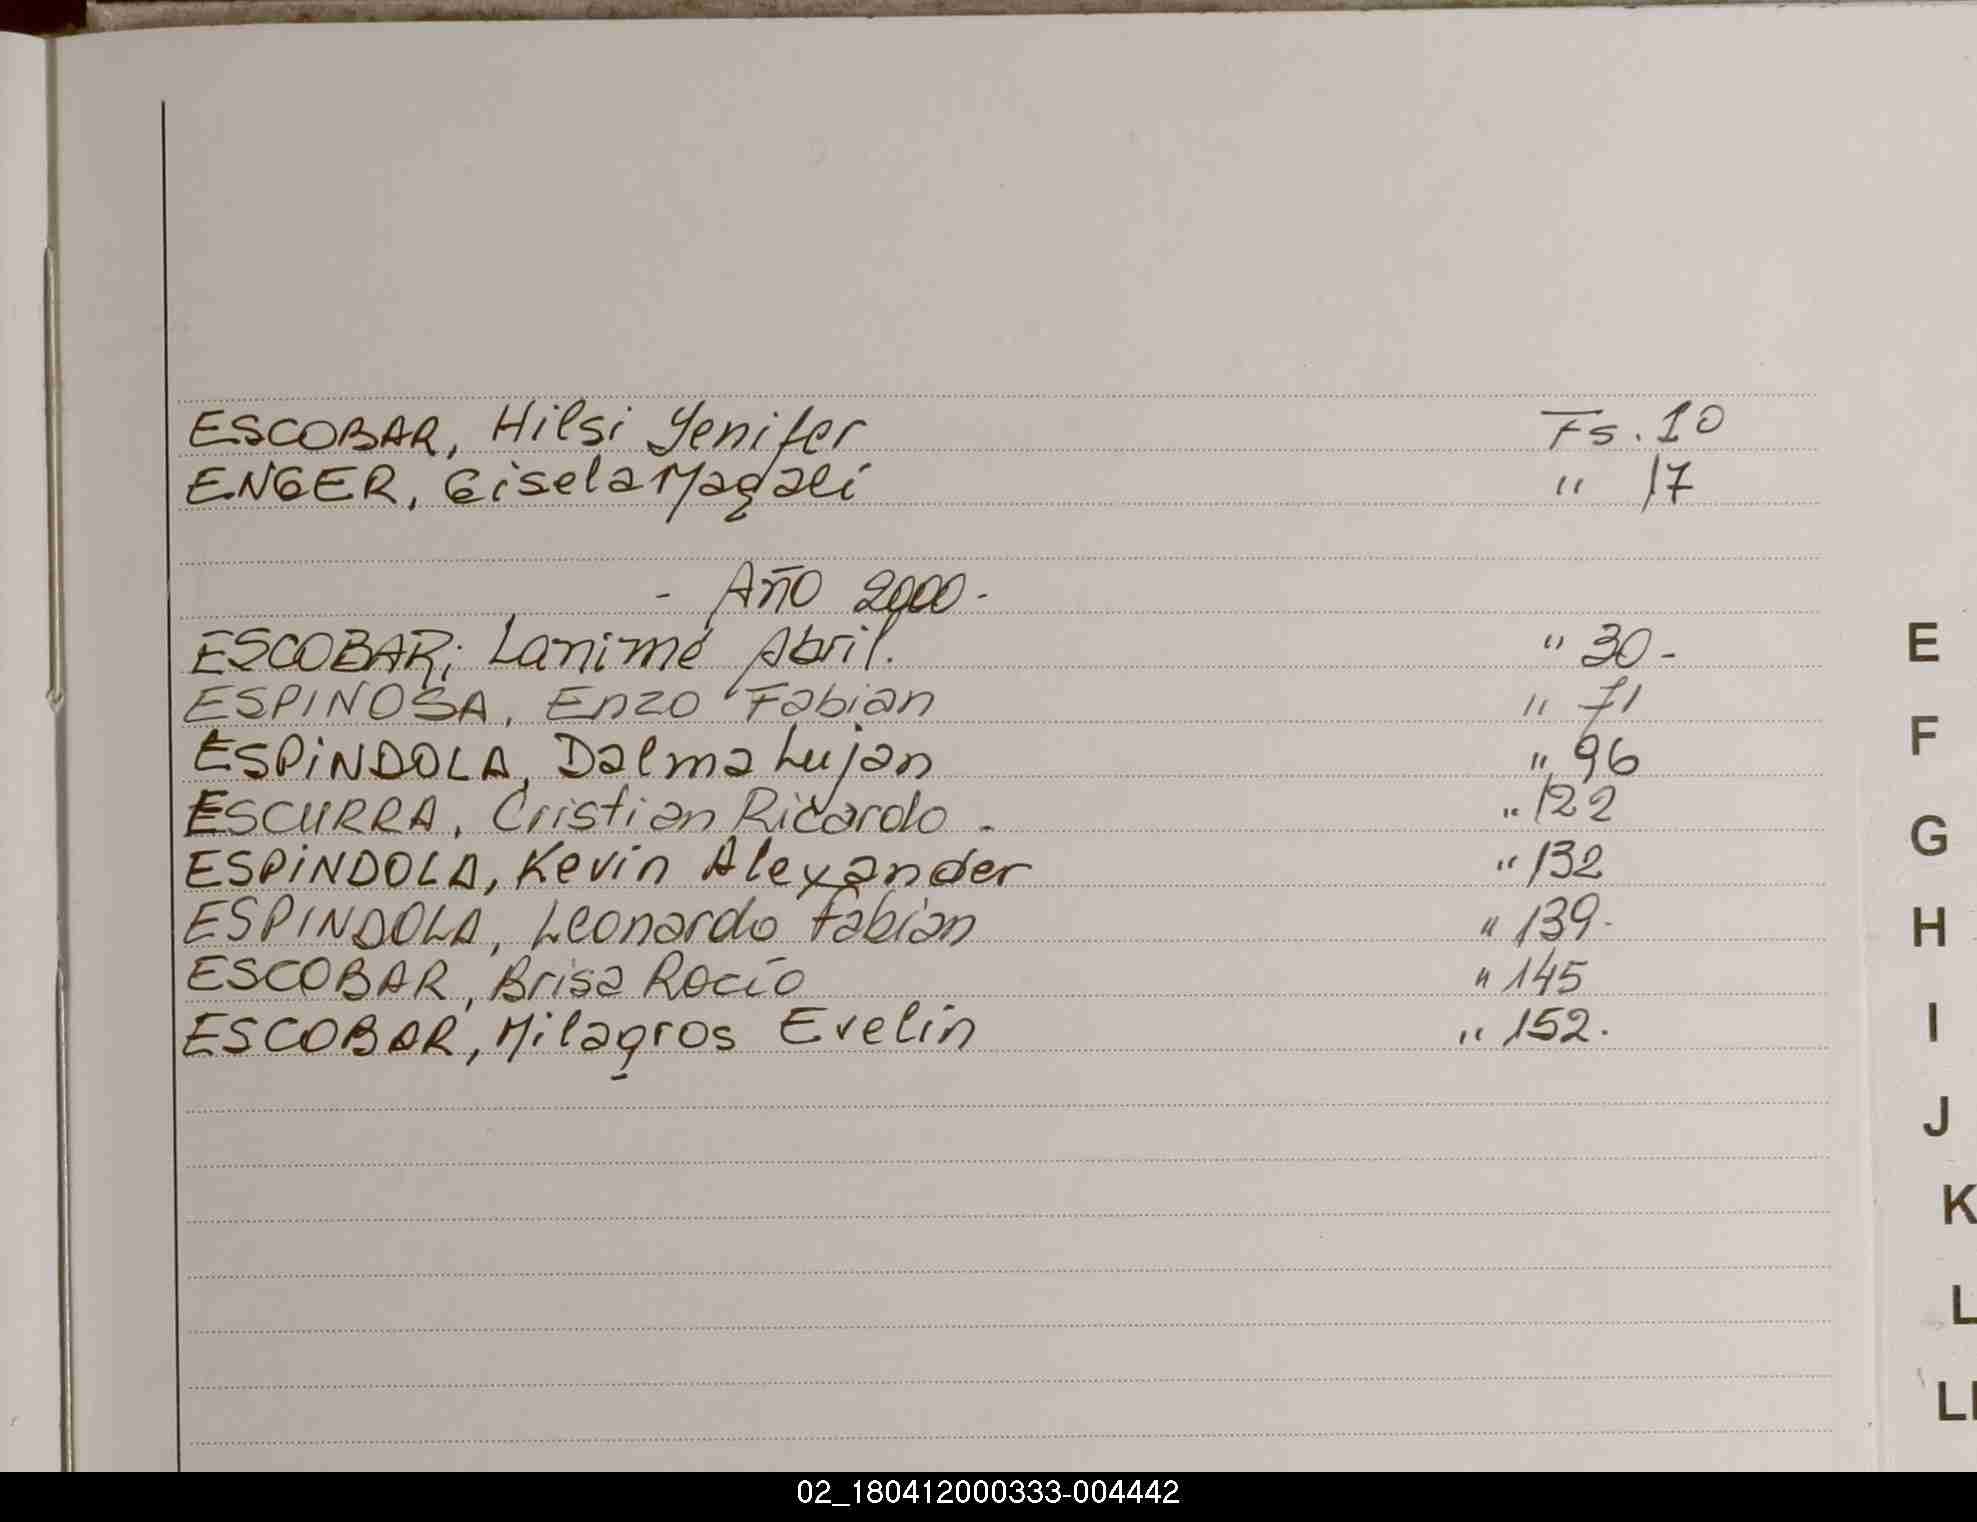 ESCOBAR, Hilsi Yenifer Fs. 10
ENGER, Gisela Magali " 17
- Año 2000 -
ESCOBAR; Lanimé Abril. " 30 -
ESPINOSA, Enzo Fabian " 71
ESPiNDOLA, Dalma Lujan " 96
ESCURRA, Cristian Ricardo - " 122
ESPiNDOLA, Kevin Alexander " 132
ESPINDOLA, Leonardo Fabian " 139-
ESCOBAR, Brisa Rocío " 145
ESCOBAR, Milagros Evelin " 152.
E
F
G
H
I
J
K
L
LL
02_180412000333-004442